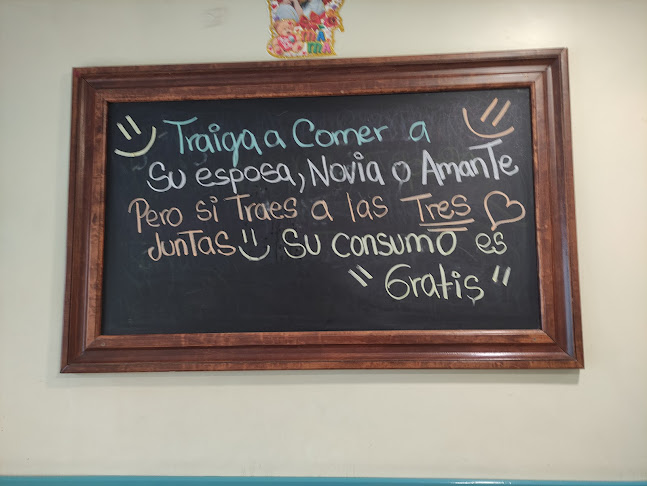 Traiga a Comer a
Su esposa, Novia o Amante
Pero si Traes a las Tres
Juntas Su consumo es
"Gratis"